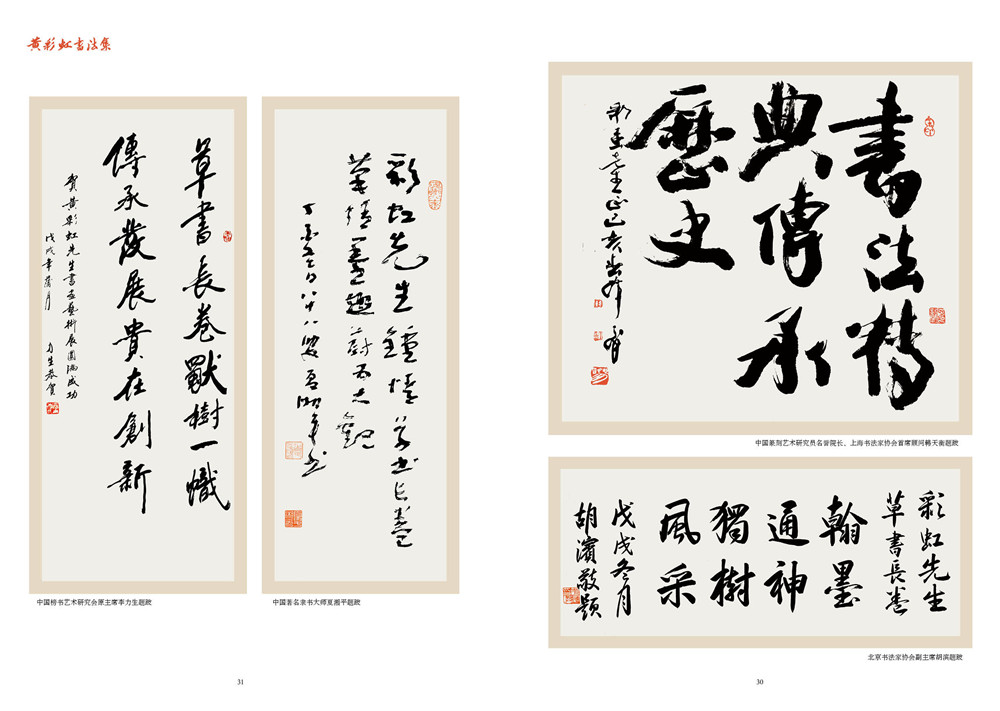 黄彩虹书法集
書法精
典傳承
歷史
中国篆刻艺术研究员名誉院长、上海书法家协会首席顾问韩天衡题跋
彩虹先生
草書長卷
翰墨
通神
獨樹
風采
戊戌冬月
胡濱敬題
北京书法家协会副主席胡滨题跋
30
彩虹先生鍾情草书长卷
蔚为大觀
中国著名隶书大师夏湘平题跋
草書長卷獸樹一幟
傳承發展貴在創新
賀黄彩虹先生書画藝術展圓滿成功
戊戌年蒲月
力生恭賀
中国榜书艺术研究会原主席李力生题跋
31